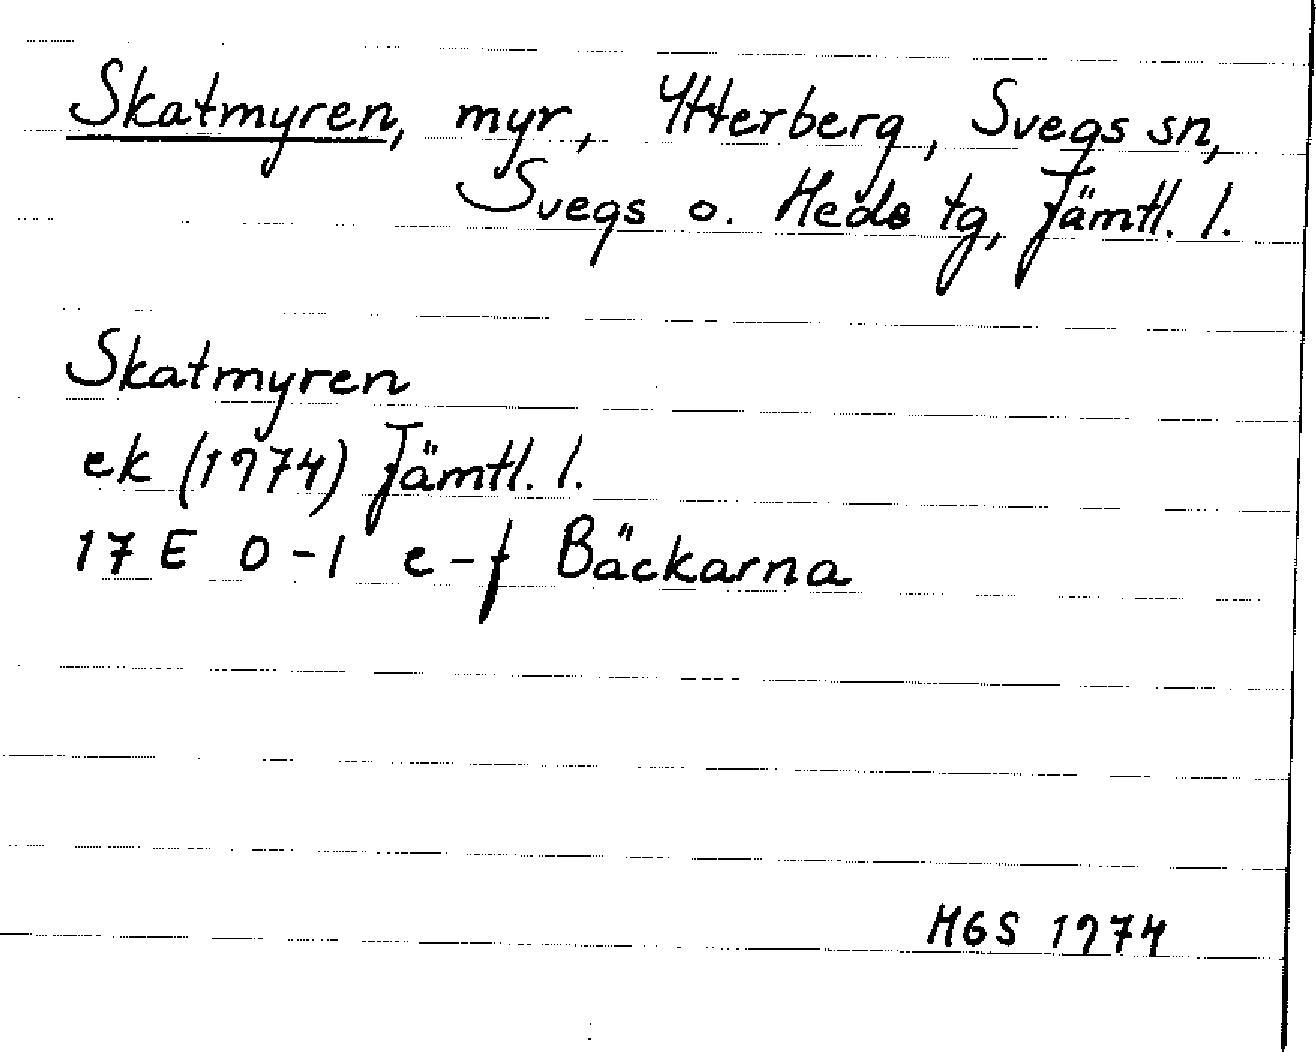 Skatmyren, myr, Ytterberg, Svegs sn,
Svegs o. Hede tg, Jämtl. l.
Skatmyren
ek (1974) Jämtl. l.
17 E 0-1 e-f Bäckarna
MGS 1974